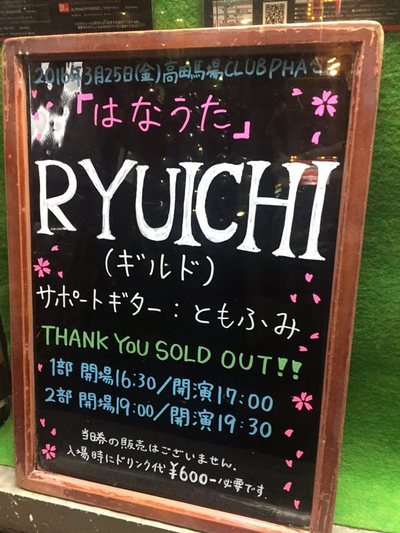 2016年3月25日(金)高田馬場CLUB PHASE
「はなうた」
RYUICHI
(ギルド)
サポートギター:ともふみ
THANK YOU SOLD OUT!!
1部 開場16:30/開演17:00
2部 開場19:00/開演19:30
当日券の販売はございません。
入場時にドリンク代¥600-必要です。